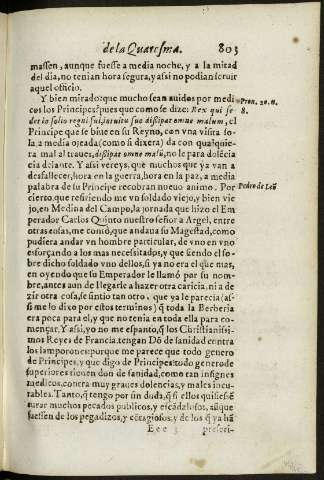 de la Quaresma. 803
massen, aunque fuesse a media noche, y a la mitad
del dia, no tenian hora segura, y assi no podian seruir
aquel officio.
Y bien mirado: que mucho sean auidos por medi
cos los Principes: pues que como se dize: Rex qui se-
det in solio regni sui, intuitu suo dissipat omne malum, el
Principe que se biue en su Reyno, con vna vista so-
la, a media ojeada (como si dixera) da con qualquie-
ra mal al traues, dissipat omne malũ, no le para dolécia
enfrente
delante. Y assi vereys, que muchos que ya van a
desfallecer, hora en la guerra, hora en la paz, a media
palabra de su Principe recobran nueuo animo. Por
cierto, que refiriendo me vn soldado viejo, y bien vie
jo, en Medina del Campo, la jornada que hizo el Em
perador Carlos Quinto nuestro señor a Argel, entre
otras cosas, me contò, que andaua su Magestad, como
pudiera andar vn hombre particular, de vno en vno
esforçando a los mas necessitados, y que siendo el so-
bre dicho soldado vno dellos, si ya no era el que mas,
en oyendo que su Emperador le llamò por su nom-
bre, antes aun de llegarle a hazer otra caricia, ni a de
zir otra cosa, se sintio tan otro, que ya le parecia (as-
si me lo dixo por estos terminos) q̃ toda la Berberia
era poca para el, y que no tenia en toda ella para co-
mençar. Y assi, yo no me espanto, q̃ los Christianissi-
mos Reyes de Francia, tengan Dõ de sanidad contra
los lamporones: porque me parece que todo genero
de Principes, y que digo de Principes: todo genero de
superiores tienen don de sanidad, como tan insignes
medicos, contra muy graues dolencias, y males incu-
rables. Tanto, q̃ tengo por sin duda, q̃ si ellos quisiessẽ
curar muchos pecados publicos, y escãdalosos, aũque
fuessen de los pegadizos, y cõtagiosos, y de los q̃ ya hã
Eee 3 prescri-
Prou. 20. n.
8.
Pedro de Leõ